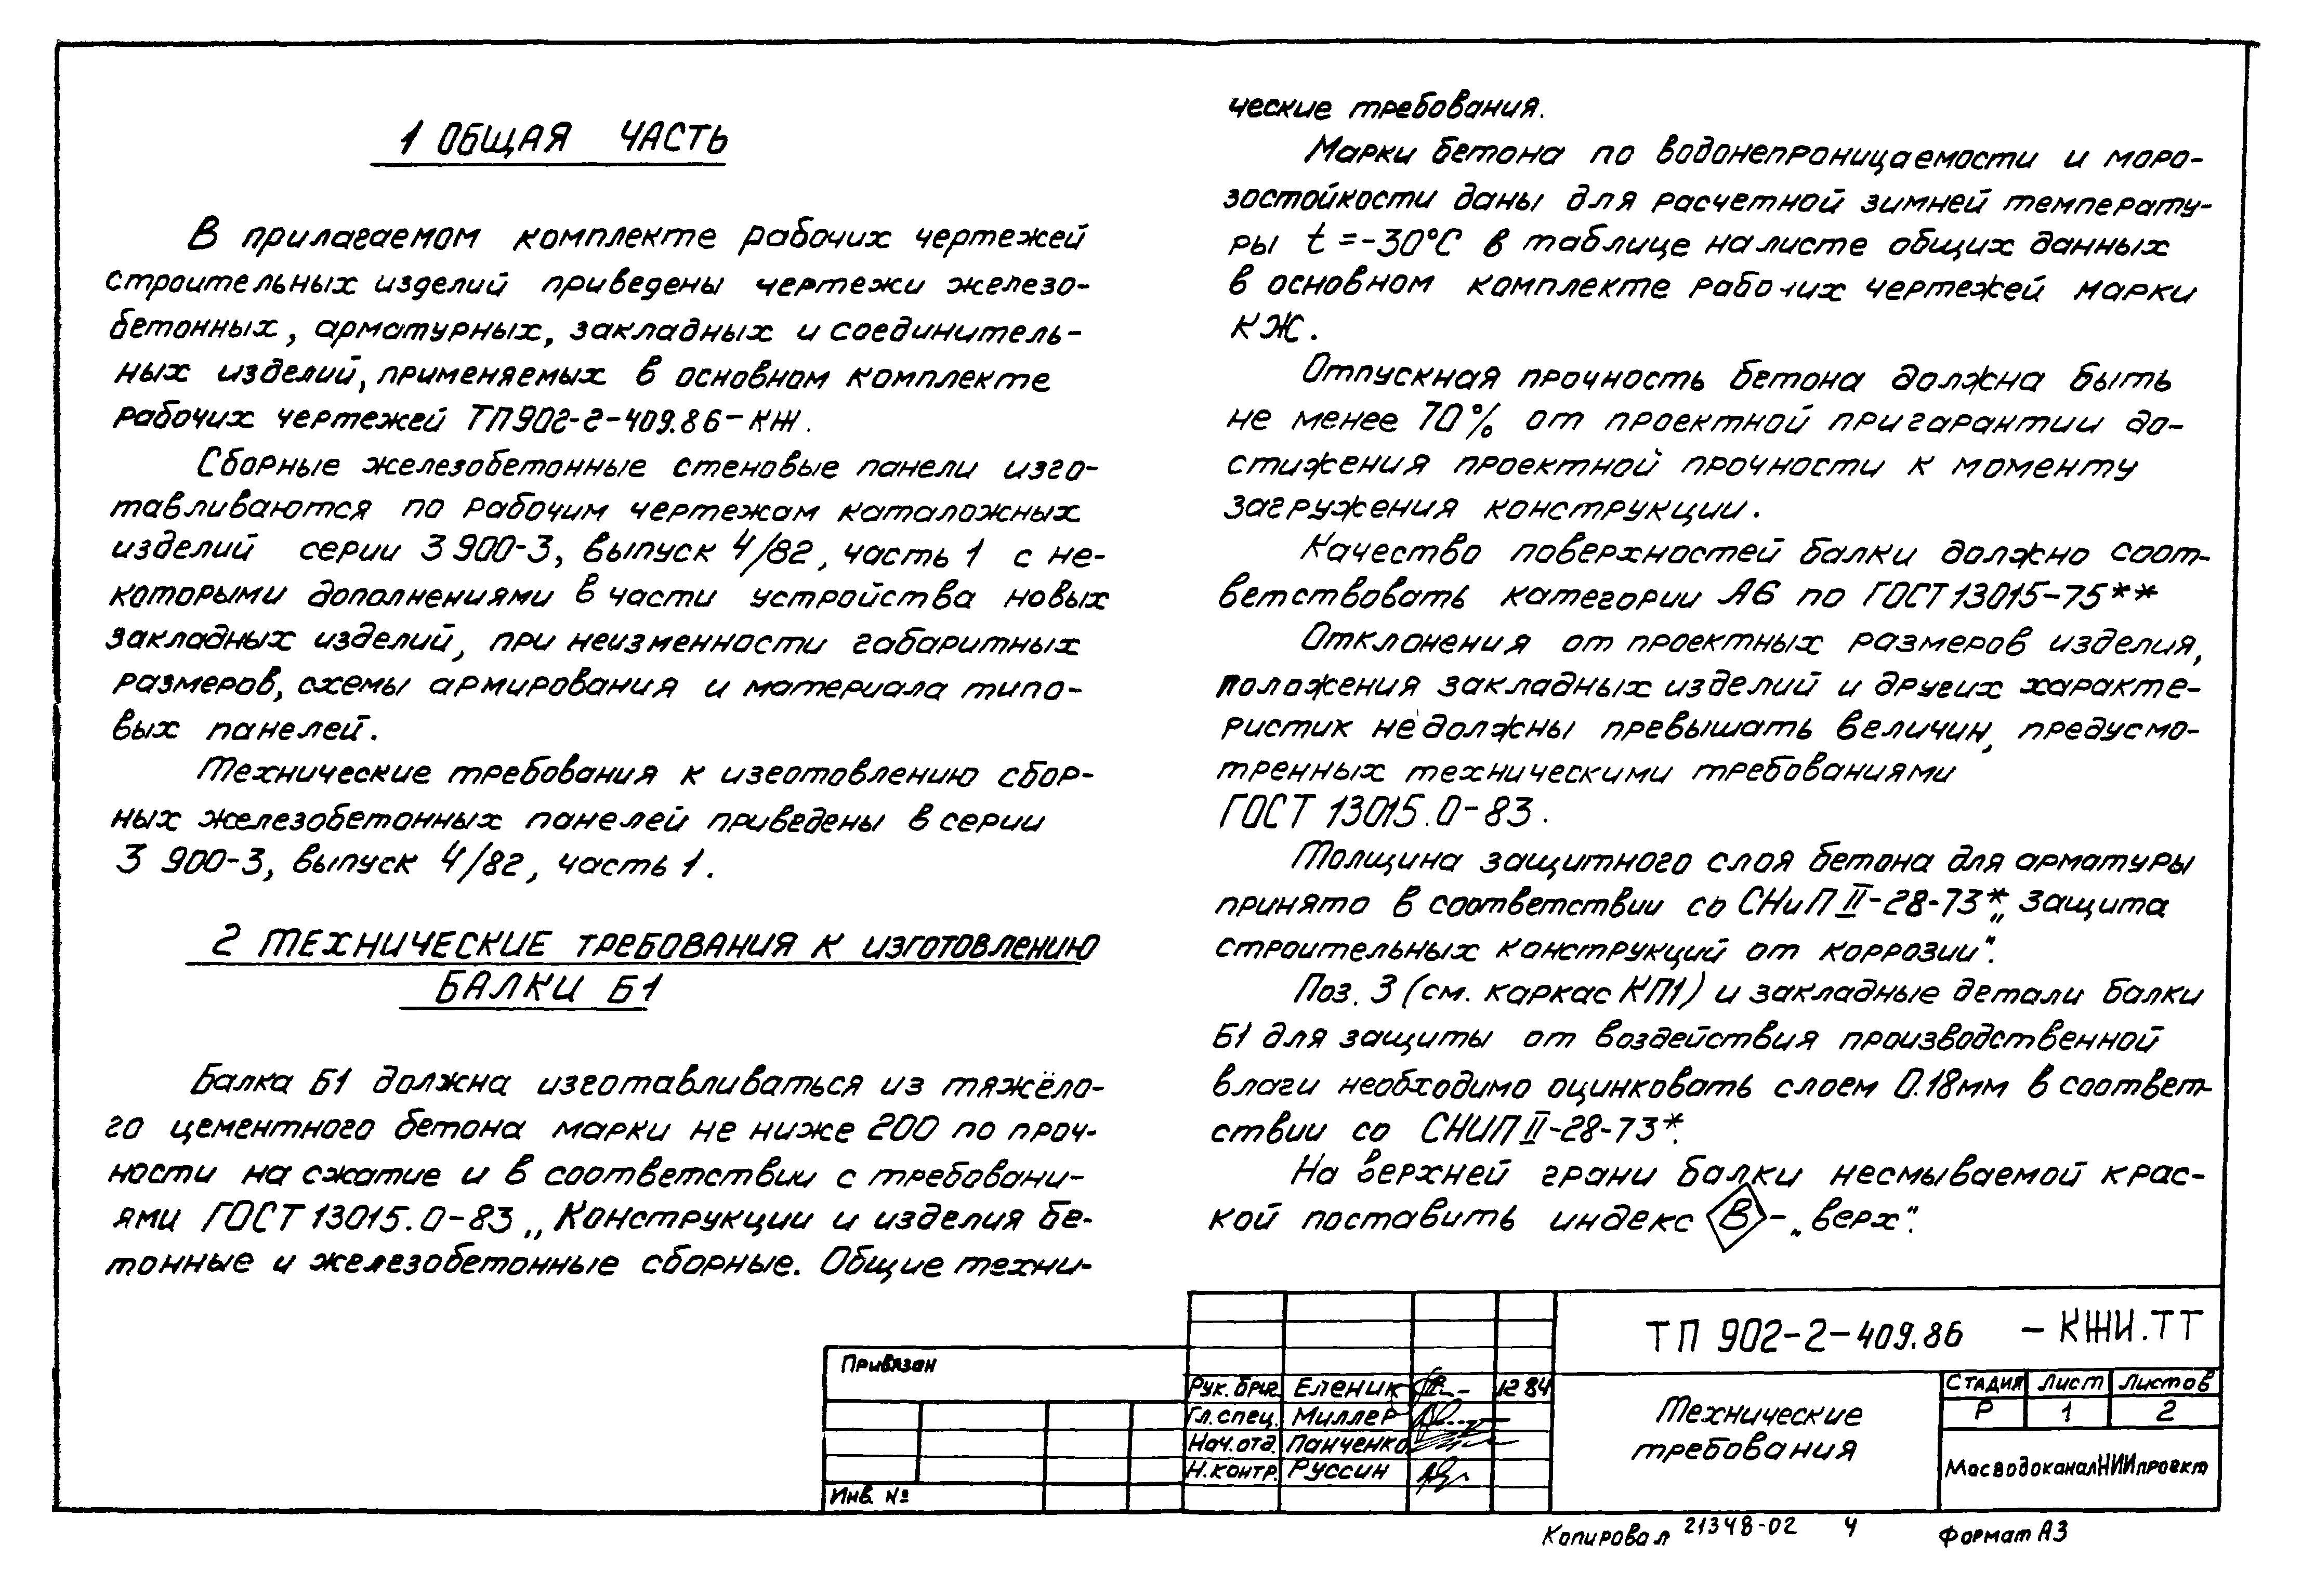 1 ОБЩАЯ ЧАСТЬ
В прилагаемом комплекте рабочих чертежей
строительных изделий приведены чертежи железо-
бетонных, арматурных, закладных и соединитель-
ных изделий, применяемых в основном комплекте
рабочих чертежей ТП 902-2-409.86-КЖ.
Сборные железобетонные стеновые панели изго-
тавливаются по рабочим чертежам каталожных
изделий серии 3 900-3, выпуск 4/82, часть 1 с не-
которыми дополнениями в части устройства новых
закладных изделий, при неизменности габаритных
размеров, схемы армирования и материала типо-
вых панелей.
Технические требования к изготовлению сбор-
ных железобетонных панелей приведены в серии
3 900-3, выпуск 4/82, часть 1.
2 ТЕХНИЧЕСКИЕ ТРЕБОВАНИЯ К ИЗГОТОВЛЕНИЮ
БАЛКИ Б1
Балка Б1 должна изготавливаться из тяжёло-
го цементного бетона марки не ниже 200 по проч-
ности на сжатие и в соответствии с требовани-
ями ГОСТ 13015.0-83 „Конструкции и изделия бе-
тонные и железобетонные сборные. Общие техни-
ческие требования.
Марки бетона по водонепроницаемости и моро-
зостойкости даны для расчетной зимней температу-
ры t=-30°С в таблице на листе общих данных
в основном комплекте рабочих чертежей марки
КЖ.
Отпускная прочность бетона должна быть
не менее 70% от проектной при гарантии до-
стижения проектной прочности к моменту
загружения конструкции.
Качество поверхностей балки должно соот-
ветствовать категории А6 по ГОСТ 13015-75**
Отклонения от проектных размеров изделия,
положения закладных изделий и других характе-
ристик не должны превышать величин, предусмо-
тренных техническими требованиями
ГОСТ 13015.0-83.
Толщина защитного слоя бетона для арматуры
принято в соответствии со СНиП II-28-73* „Защита
строительных конструкций от коррозии".
Поз. 3 (см. каркас КП1) и закладные детали балки
Б1 для защиты от воздействия производственной
влаги необходимо оцинковать слоем 0.18мм в соответ-
ствии со СНИП II-28-73*.
На верхней грани балки несмываемой крас-
кой поставить индекс В - „верх".
ТП 902-2-409.86 -КЖИ.ТТ
Привязан
Рук. бриг. Еленик 12 84
Гл. спец. Миллер
Нач. отд. Панченко
Н. контр. Руссин
Инв. №
Технические
требования
Стадия Лист Листов
Р 1 2
МосводоканалНИИпроект
Копировал 21348-02 4 Формат А3